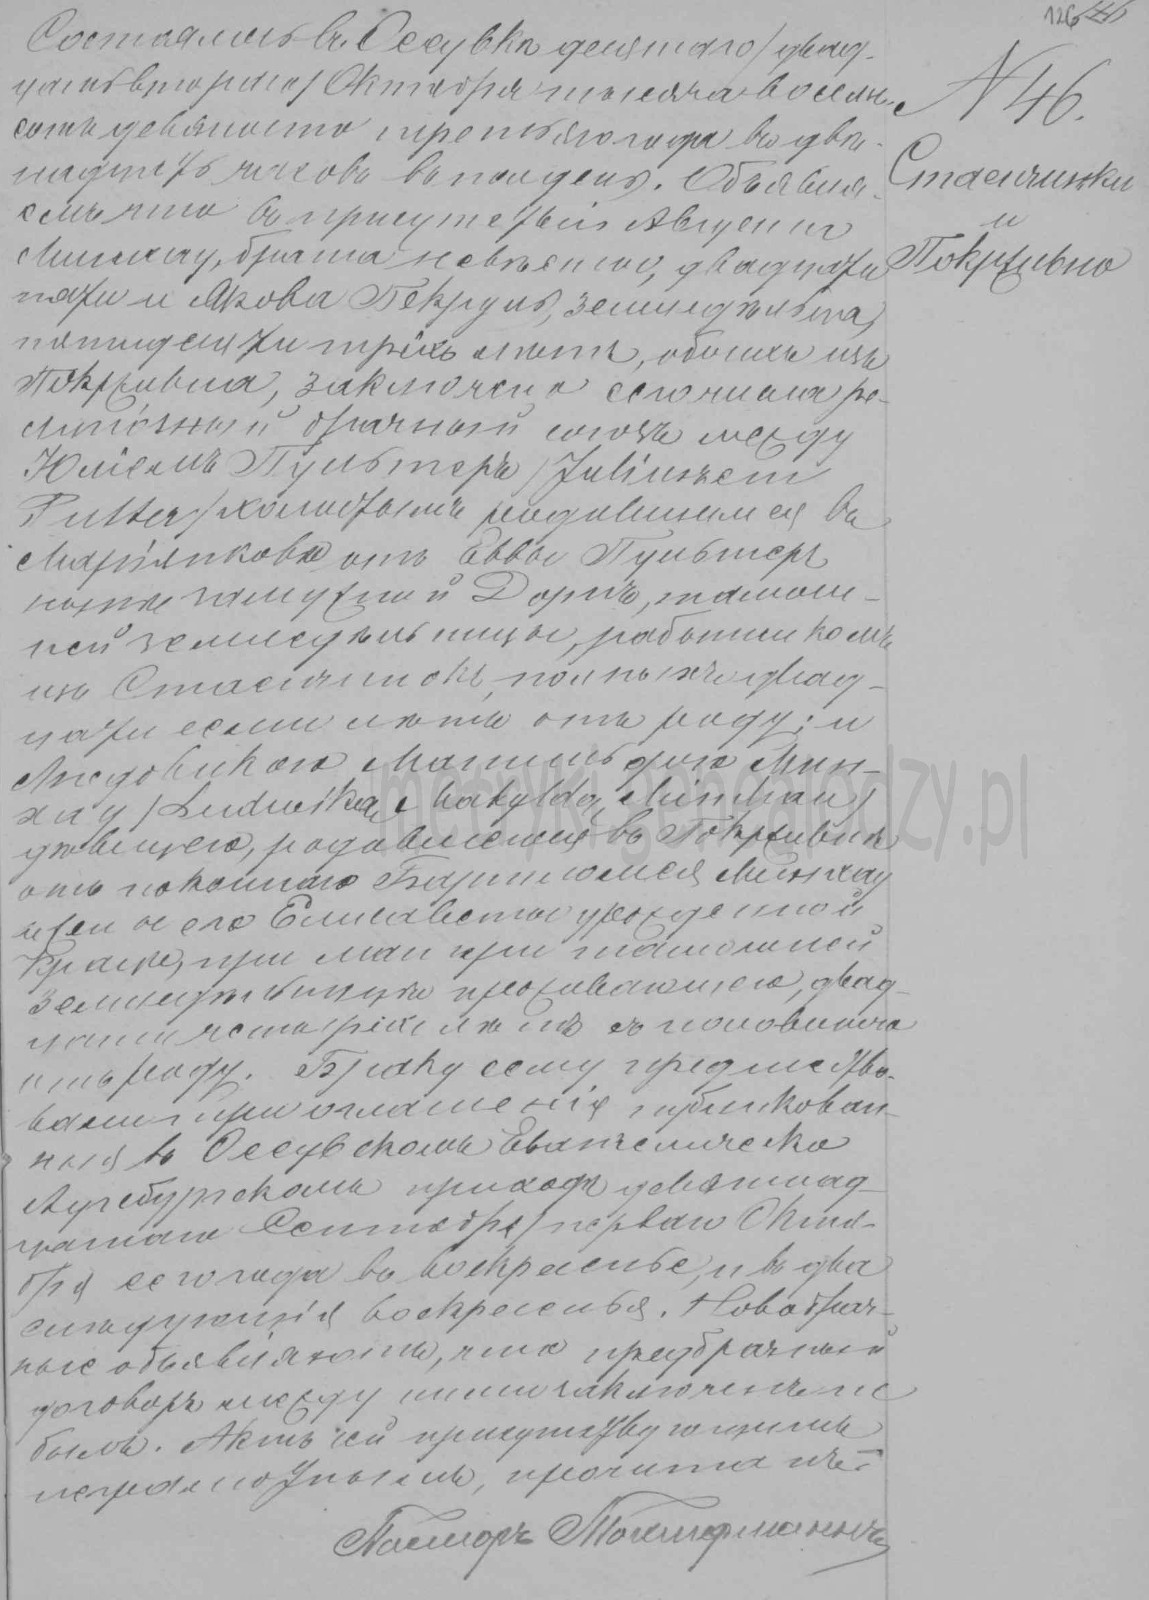 126
N 46.
Стасичинки
и
Покрживно
Состоялось въ Оссувка десятаго/двад-
цатьвтораго/Октября тысяча восемь-
сотъ девяносто третьяго года въ две-
надцать часовъ въ полдень. Объявля-
емъ что въ присутствіи Августа
Минхау, брата невесты, двадцати
пяти и Якова Пекруль, земледельца,
пятидесяти трехъ летъ, обоихъ изъ
Покрживна, заключенъ сего числа ре-
лигіозный брачный союзъ между
Юліемъ Пультеръ /Juliuszem
Pulter/ холостымъ родившимся въ
Маріянкове отъ Еввы Пультеръ
ныне замужной Дормъ, тамош-
ней земледельницы, работникомъ
изъ Стасичинокъ, полныхъ двад-
цати семи летъ отъ роду; и
Людовикою Матильдою Мин-
хау /Ludwiką Matyldą Minchau/
девицею, родившеюся въ Покрживне
отъ покойнаго Бартоломея Минхау
и жены его Елисаветы урожденной
Краузе, при матери тамошней
земледельнице проживающею, двад-
цати четырехъ летъ съ половиною
отъ роду. Браку сему предшество-
вали три оглашенія публикован-
ныя въ Оссувскомъ Евангелическо
Аугсбургскомъ приходе девятнад-
цатаго Сентября/перваго Октя-
бря сего года въ воскресенье, и въ два
следующія воскресенья. Новобрач-
ные объявляютъ, что предбрачный
договоръ между ними заключенъ не
былъ. Актъ сей присутствующимъ
неграмотнымъ, прочитанъ.
Пасторъ